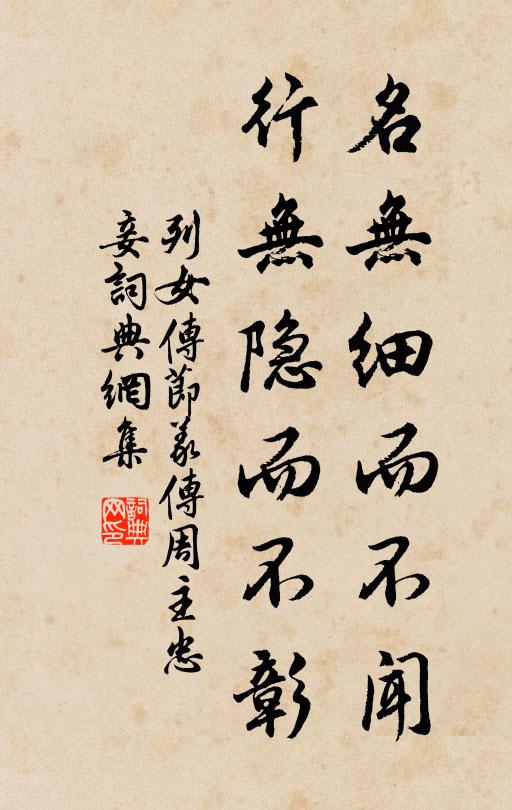 名無细而不闻
行無隐而不彰
列女傳節义傳周主忠
妾詞典網集
詞典
网印